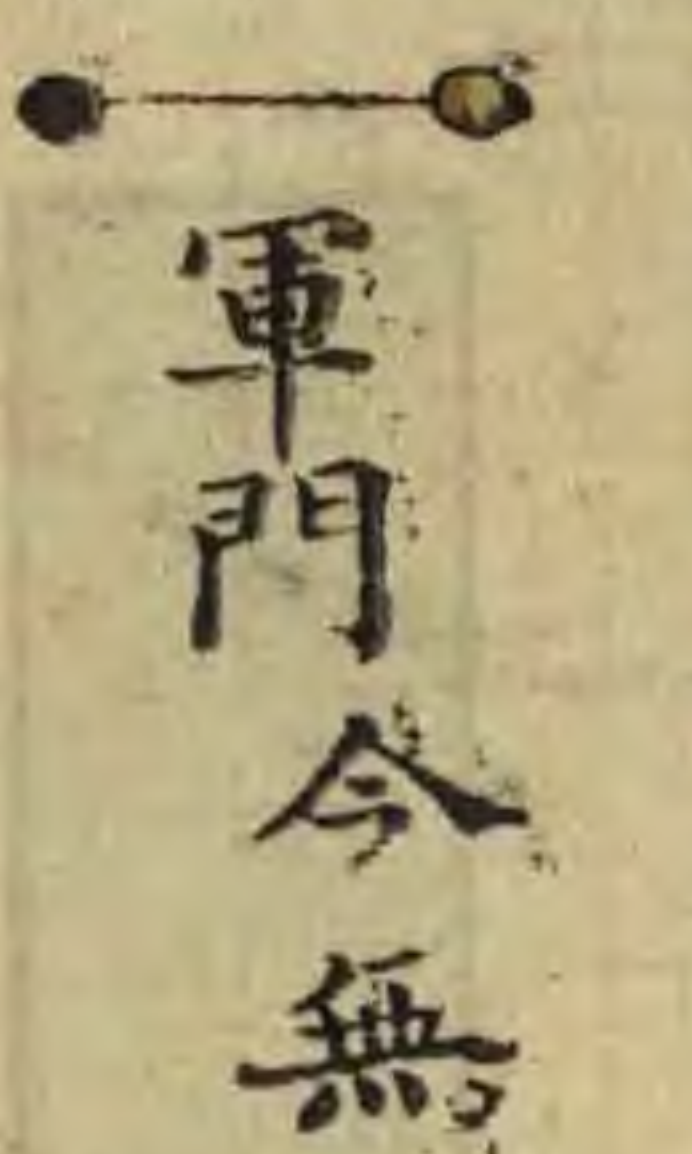 軍門今無